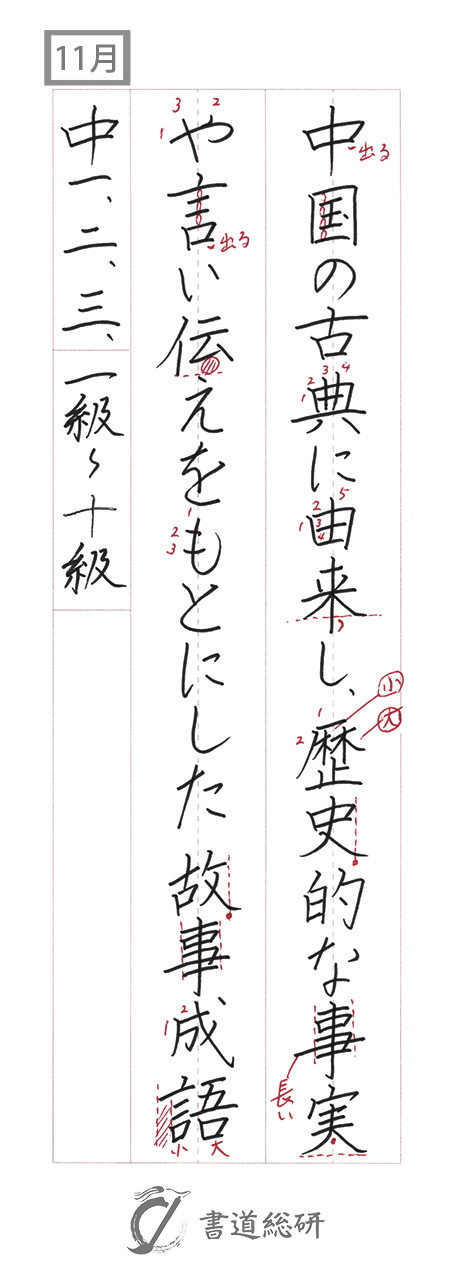 11月
中国の古典に由来し、歴史的な事実
や言い伝えをもとにした故事成語
中一、二、三、一級〜十級
出る
1 2 3 4
1 2 3 4 5
ク
小
大
1 2
長い
1 2 3
出る
1 2 3
1 2
小 大
書道総研